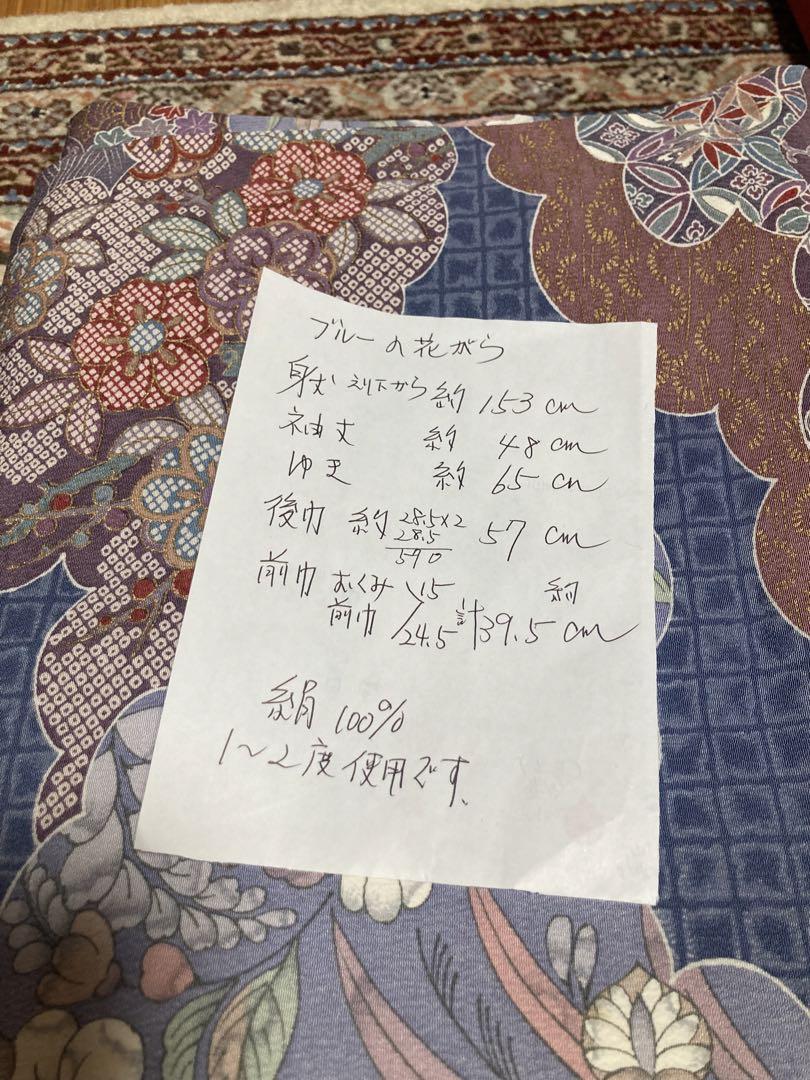 ブルーの花がら
身丈 衿下から 約 153 cm
袖丈 約 48 cm
ゆき 約 65 cm
後巾 約 28.5×2 57 cm
28.5
570
前巾 おくみ 15 約
前巾 24.5 計 39.5 cm
絹 100%
1〜2度使用です、